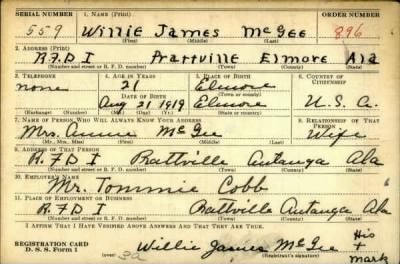 SERIAL NUMBER 1. NAME (Print) ORDER NUMBER
559 Willie James McGee 896
(First) (Middle) (Last)
2. ADDRESS (Print)
R.F.D I Prattville Elmore Ala
(Number and street or R. F. D. number) (Town) (County) (State)
3. TELEPHONE 4. AGE IN YEARS 5. PLACE OF BIRTH 6. COUNTRY OF CITIZENSHIP
none 21 Elmore
DATE OF BIRTH (Town or county)
Aug 21 1919 Elmore U.S.A.
(Exchange) (Number) (Mo.) (Day) (Yr.) (State or country)
7. NAME OF PERSON WHO WILL ALWAYS KNOW YOUR ADDRESS 8. RELATIONSHIP OF THAT PERSON
Mrs. Annie McGee Wife
(Mr., Mrs., Miss) (First) (Middle) (Last)
9. ADDRESS OF THAT PERSON
R.F.D I Prattville Autauga Ala
(Number and street or R. F. D. number) (Town) (County) (State)
10. EMPLOYER'S NAME
Mr. Tommie Cobb
11. PLACE OF EMPLOYMENT OR BUSINESS
R.F.D I Prattville Autauga Ala
(Number and street or R. F. D. number) (Town) (County) (State)
I AFFIRM THAT I HAVE VERIFIED ABOVE ANSWERS AND THAT THEY ARE TRUE.
His
REGISTRATION CARD Willie James McGee +
D. S. S. Form 1 (over) (Registrant's signature) Mark